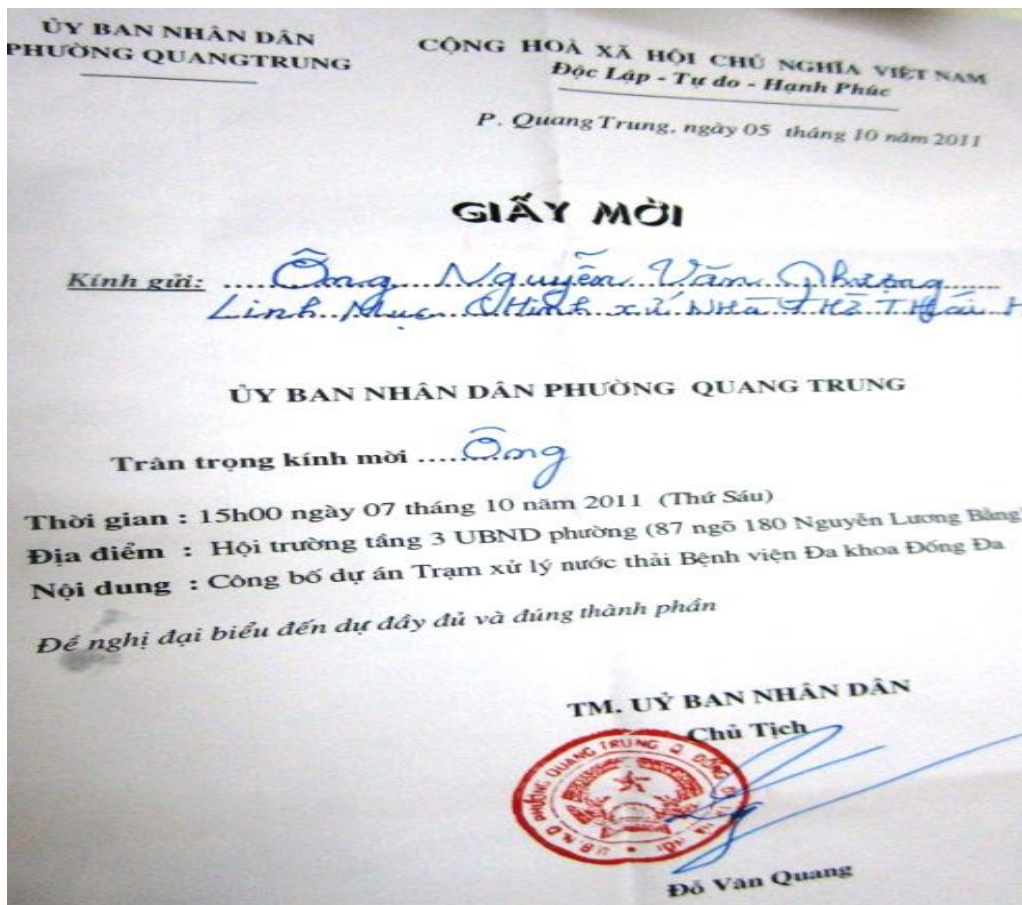 ỦY BAN NHÂN DÂN
PHƯỜNG QUANGTRUNG
CỘNG HOÀ XÃ HỘI CHỦ NGHĨA VIỆT NAM
Độc Lập - Tự do - Hạnh Phúc
P. Quang Trung, ngày 05 tháng 10 năm 2011
GIẤY MỜI
Kính gửi: .....Ông Nguyễn Văn Phượng
Linh Mục Chính xứ Nhà Thờ Thái H
ỦY BAN NHÂN DÂN PHƯỜNG QUANG TRUNG
Trân trọng kính mời ....Ông
Thời gian : 15h00 ngày 07 tháng 10 năm 2011 (Thứ Sáu)
Địa điểm : Hội trường tầng 3 UBND phường (87 ngõ 180 Nguyễn Lương Bằng)
Nội dung : Công bố dự án Trạm xử lý nước thải Bệnh viện Đa khoa Đống Đa
Đề nghị đại biểu đến dự đầy đủ và đúng thành phần
TM. UỶ BAN NHÂN DÂN
Chủ Tịch
U.B.N.D PHƯỜNG QUANG TRUNG Q ĐỐNG ĐA HÀ NỘI
Đỗ Văn Quang